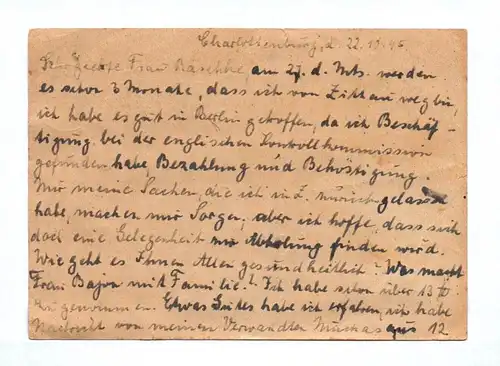 Charlottenburg, d. 22.10.46
Frau Raschke am 27. d. Mts. werden
es schon 3 Monate, dass ich von Zittau weg bin,
ich habe es gut in Berlin getroffen, da ich Beschäf-
tigung bei der englischen Kontrollkommission
gefunden habe Bezahlung und Beköstigung.
Nur meine Sachen, die ich in Z. zurück gelassen
habe, machen mir Sorgen, aber ich hoffe, dass sich
doch eine Gelegenheit zur Abholung finden wird.
Wie geht es Ihnen Allen gesundheitlich? Was macht
Frau Bajon mit Familie? Ich habe schon über 13 ℔
zugenommen. Etwas Gutes habe ich erfahren, ich habe
Nachricht von meinen Verwandten aus 12